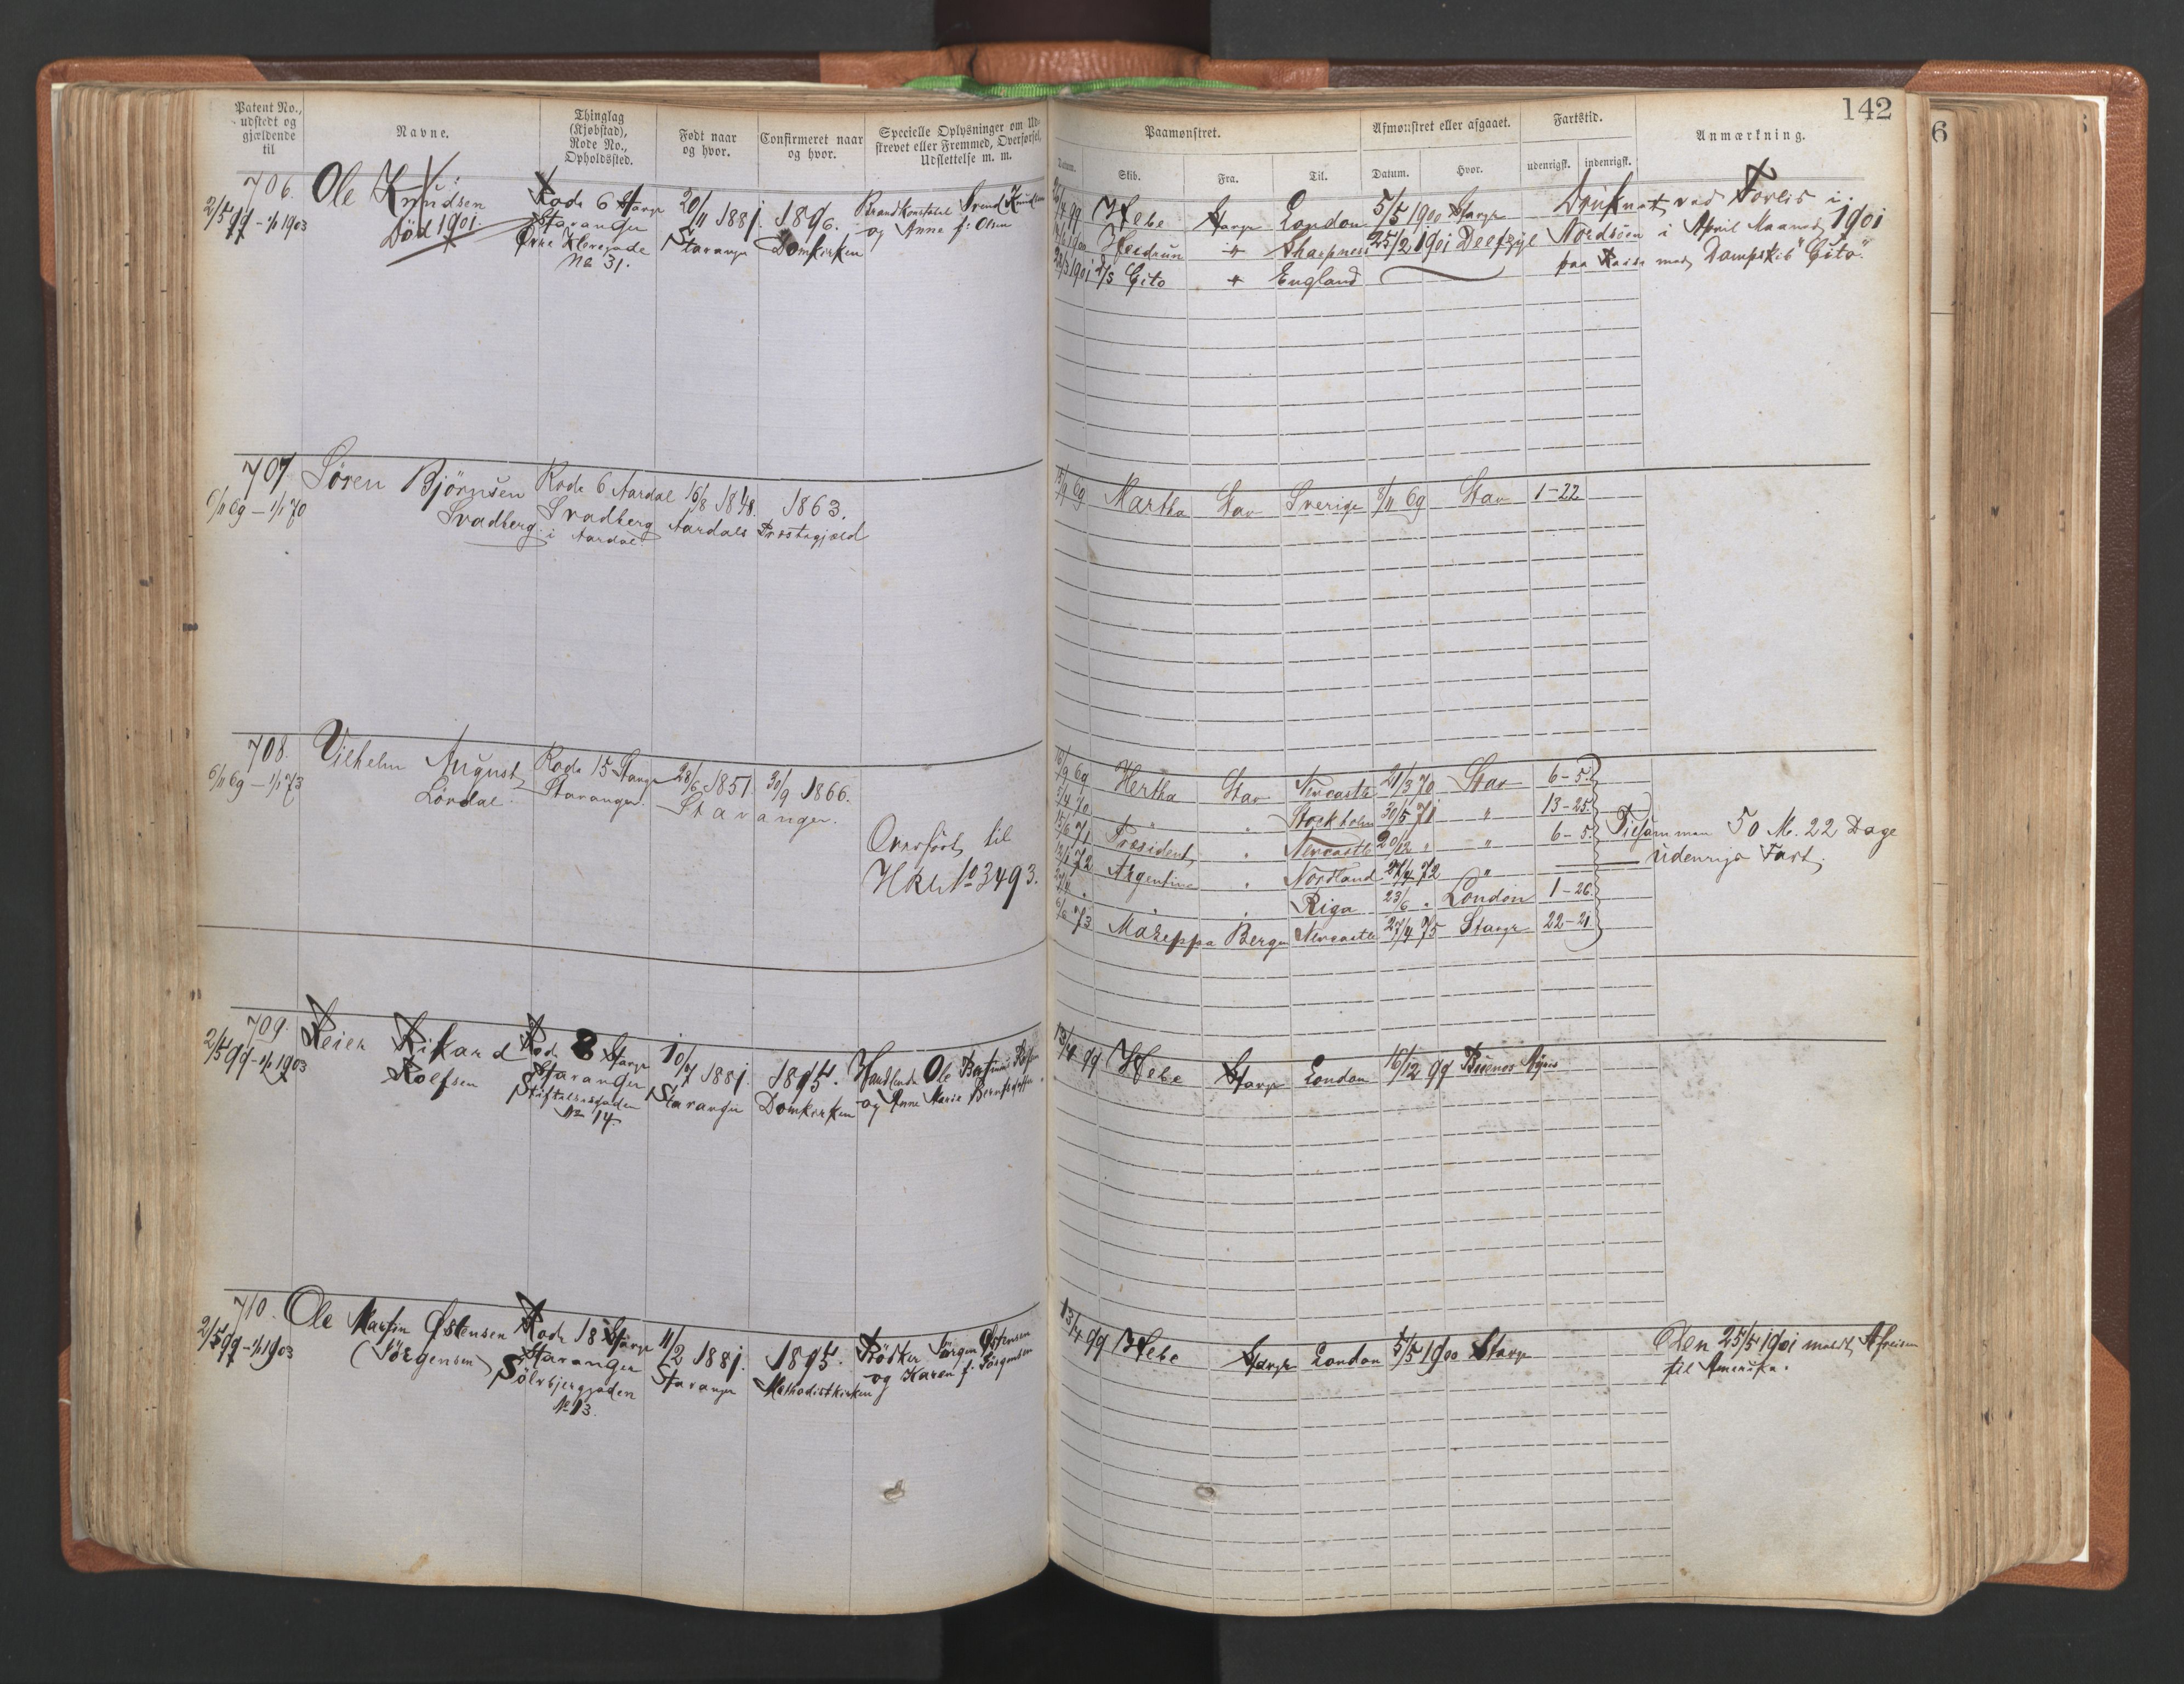 142
Patent No., udstedt og gjældende til
Navne.
Thinglag (Kjøbstad), Rode No., Opholdssted.
Født naar og hvor.
Confirmeret naar og hvor.
Specielle Oplysninger om Udskrevet eller Fremmed, Overførsel, Udslettelse m. m.
Paamønstret.
Datum.
Skib.
Fra.
Til.
Afmønstret eller afgaaet.
Datum.
Hvor.
Fartstid.
udenrigsk.
indenrigsk.
Anmærkning.
706.
2/5 99 - 1/1 1903
Ole Knudsen
Död 1901.
Rode 6 Stavgr
Stavanger
Øvre Klevegade
No 31.
20/11 1881.
Stavanger
1896.
Domkirken
Brandkonstabel Svend Knudsen
og Anne f. Olsen
Hebe Stavgr London 5/5 1900 Stavgr
Heidrun " Sharpness 25/2 1901 Delfzyl
22/3 1901 D/S Cito " England
Druknet ved Forlis i
Nordsöen i April Maaned 1901
paa Reise med Dampskib "Cito".
707.
6/11 69 - 1/1 70
Sören Björnsen
Svadberg
Rode 6 Aardal
Svadberg
i Aardal
16/8 1848.
Aardals
1863.
Præstegjæld
15/9 69 Martha Stav Sverige 8/11 69 Stav 1-22
708.
6/11 69 - 1/1 73
Vilhelm August
Lördal
Rode 15 Stavgr
Stavanger.
28/6 1851.
30/9 1866.
Stavanger.
Overfört til
Hkl No 3493.
16/9 69 Hertha Stav Newcastle 21/3 70 Stav 6-5
5/4 70 " " Stockholm 30/5 71 " 13-25
15/6 71 Præsident " Newcastle 20/12 " " 6-5
12/1 72 Argentina " Nordland 27/4 72 "
" " Riga 23/6 " London 1-26
6/6 73 Mazeppa Bergen Newcastle 27/4 75 Stavgr 22-21
Tilsammen 50 M. 22 Dage
udenrigs Fart.
709.
2/5 99 - 1/1 1903
Reier Rikard
Rolfsen
Rode 8 Stavgr
Stavanger
Stiftelsesgaden
No 14
10/7 1881.
Stavanger
1895.
Domkirken
Handlende Ole Bertinus Rolfsen
og Anne Marie Berntsdatter
13/4 99 Hebe Stavgr London 16/12 99 Buenos Ayres
710.
2/5 99 - 1/1 1903
Ole Martin Østensen
(Jörgensen)
Rode 18 Stavgr
Stavanger
Sölvbjerggaden
No 13.
11/2 1881.
Stavanger
1895.
Methodistkirken
Bödker Jörgen Østensen
og Karen f. Jörgensen
13/4 99 Hebe Stavgr London 5/5 1900 Stavgr
Den 25/5 1901 meldt Afreisen
til Amerika.
6